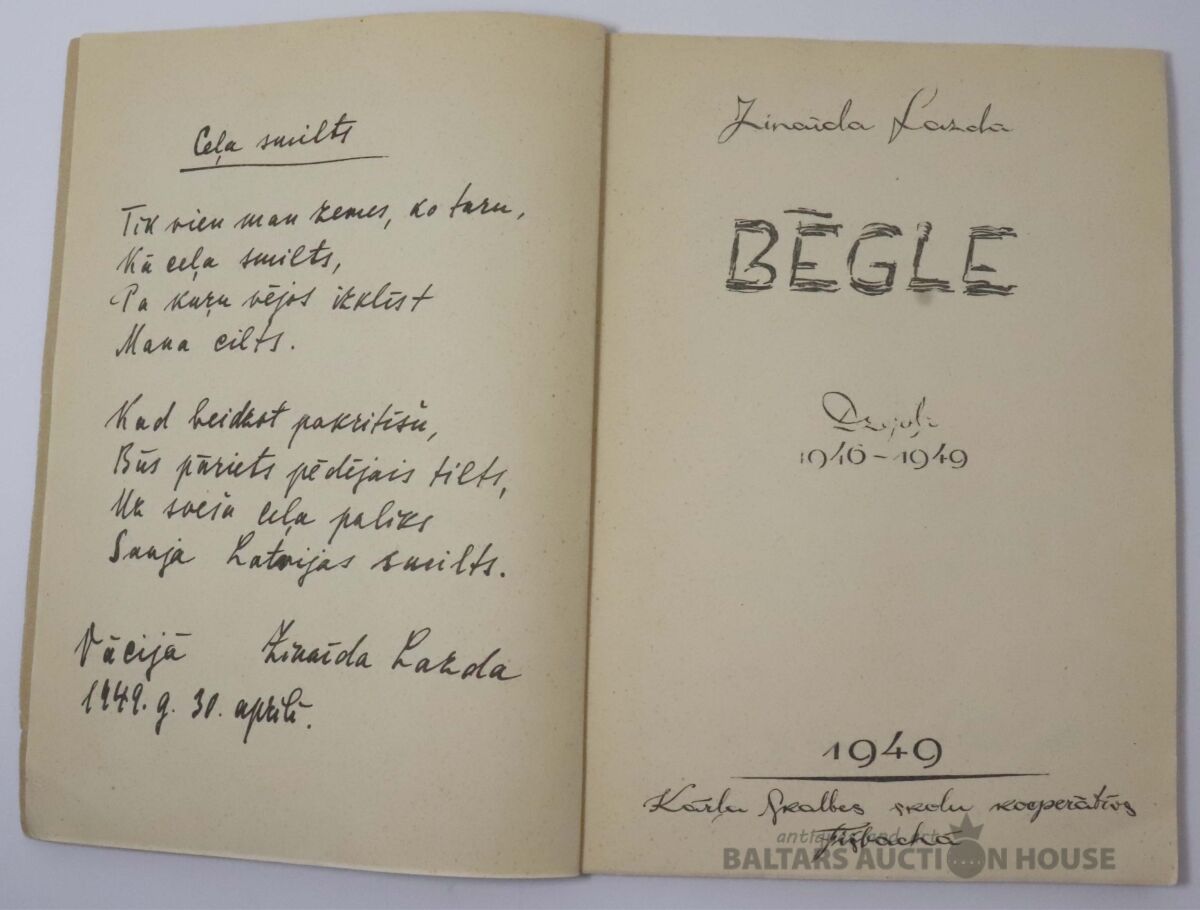 Ceļa smilts
Tik vien man zemes, ko turu,
Kā ceļa smilts,
Pa kuŗu vējos izklīst
Mana cilts.
Kad beidzot pakritīšu,
Būs pāriets pēdējais tilts,
Uz sveša ceļa paliks
Sauja Latvijas smilts.
Vācijā Zinaīda Lazda
1949. g. 30. aprīlī.
Zinaīda Lazda
BĒGLE
Dzejoļi
1946-1949
1949
Kārļa Skalbes skolu kooperātīvs
Fišbachā
antiques and art
BALTARS AUCTION HOUSE